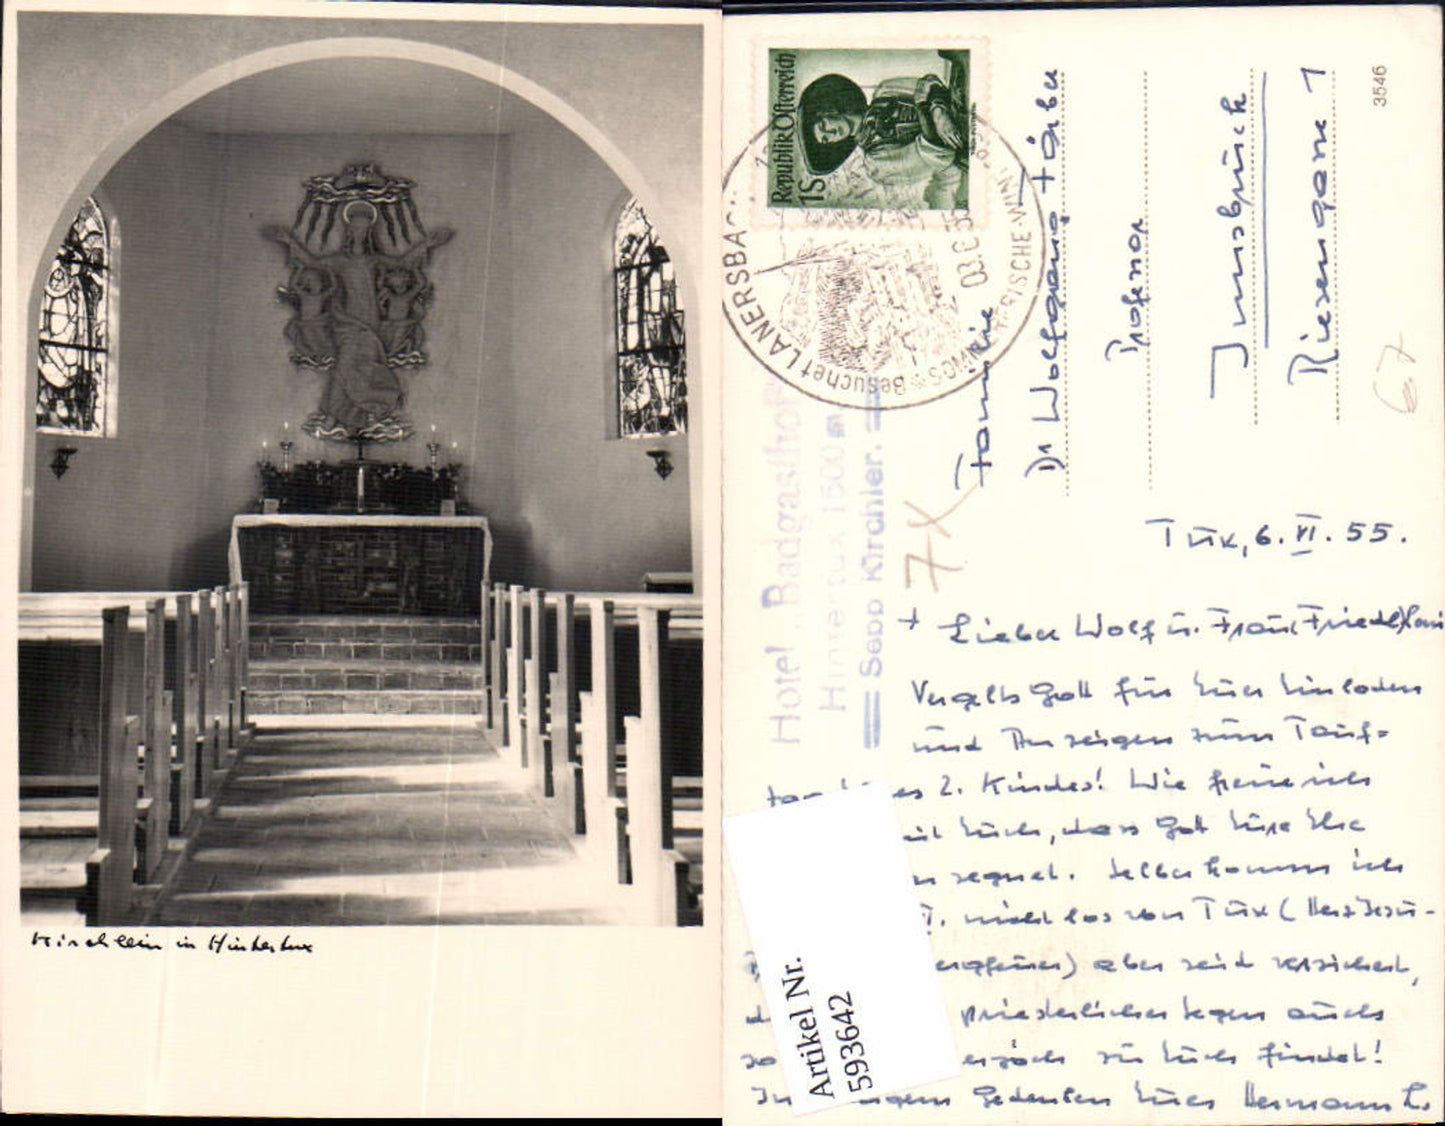 Kirchlein in Hintertux
Republik Österreich
1S
Besuchet LANERSBACH
03.6.55
FRISCHE-WIN
3546
Hotel Badgasthof
Hintertux 1500 m
Sepp Kirchler.
Familie
Dr Wolfgang
Professor
Innsbruck
Riesengasse 1
67
7X
Tux, 6. VI. 55.
+ Lieber Wolf u. Frau (Friedl)
Vergelts Gott für Euer Einladen
und Anzeigen zum Tauf-
es 2. Kindes! Wie freue ich
mit Euch, dass Gott Eure Ehe
segnet. Selber komme ich
nicht los von Tux (Herz Jesu-
aber seid versichert,
priesterlicher Segen auch
zu Euch findet!
In Gedenken Euer Hermann L.
Artikel Nr.
593642